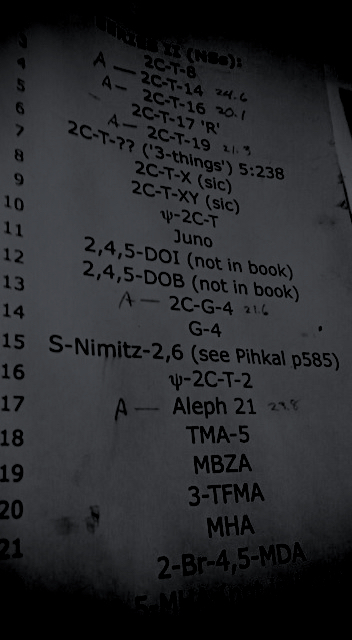 SERIES II (NSe):
3 2C-T-8
4 A — 2C-T-14 24.6
5 A - 2C-T-16 20.1
6 2C-T-17 'R'
7 A - 2C-T-19
8 2C-T-?? ('3-things') 5:238
9 2C-T-X (sic)
10 2C-T-XY (sic)
11 ψ-2C-T
12 Juno
13 2,4,5-DOI (not in book)
14 2,4,5-DOB (not in book)
15 A — 2C-G-4 21.6
16 G-4
17 S-Nimitz-2,6 (see Pihkal p585)
18 ψ-2C-T-2
19 A — Aleph 21
20 TMA-5
21 MBZA
3-TFMA
MHA
2-Br-4,5-MDA